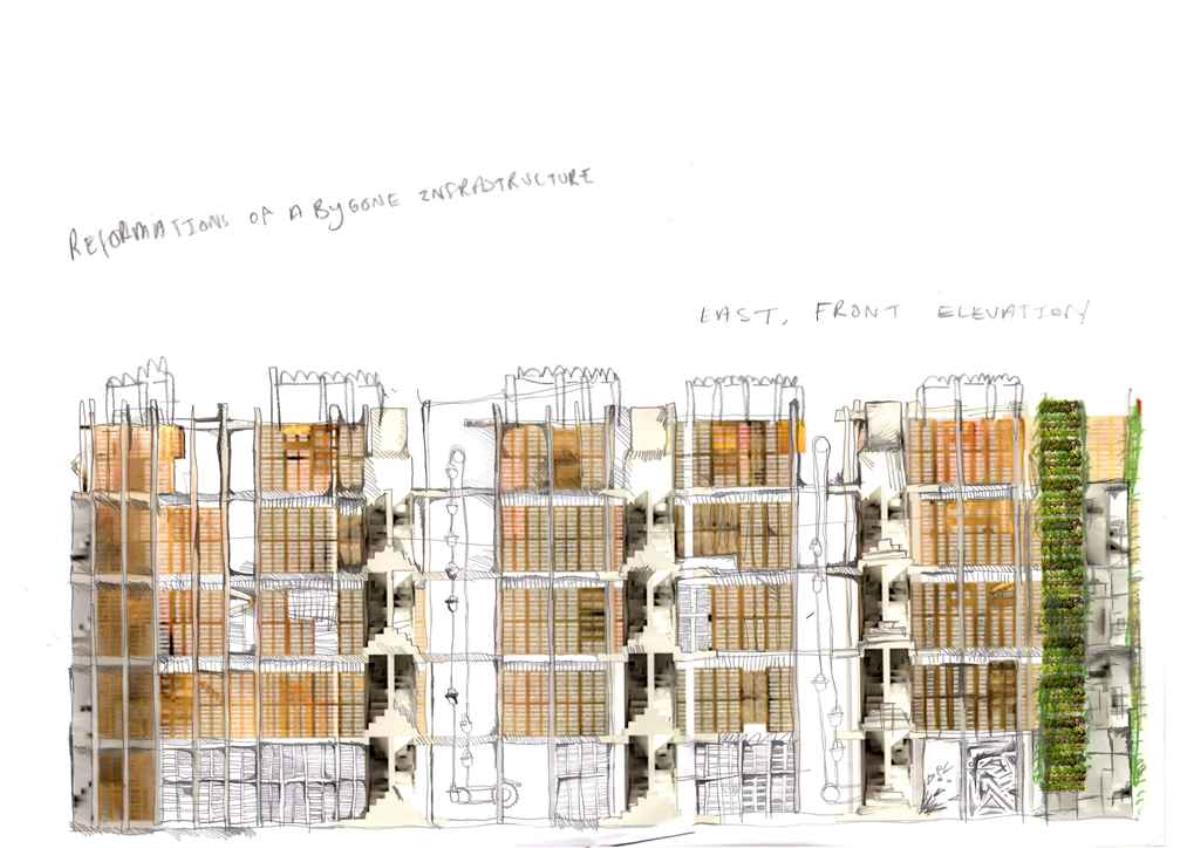 REFORMATIONS OF A BYGONE INFRASTRUCTURE
EAST, FRONT ELEVATION